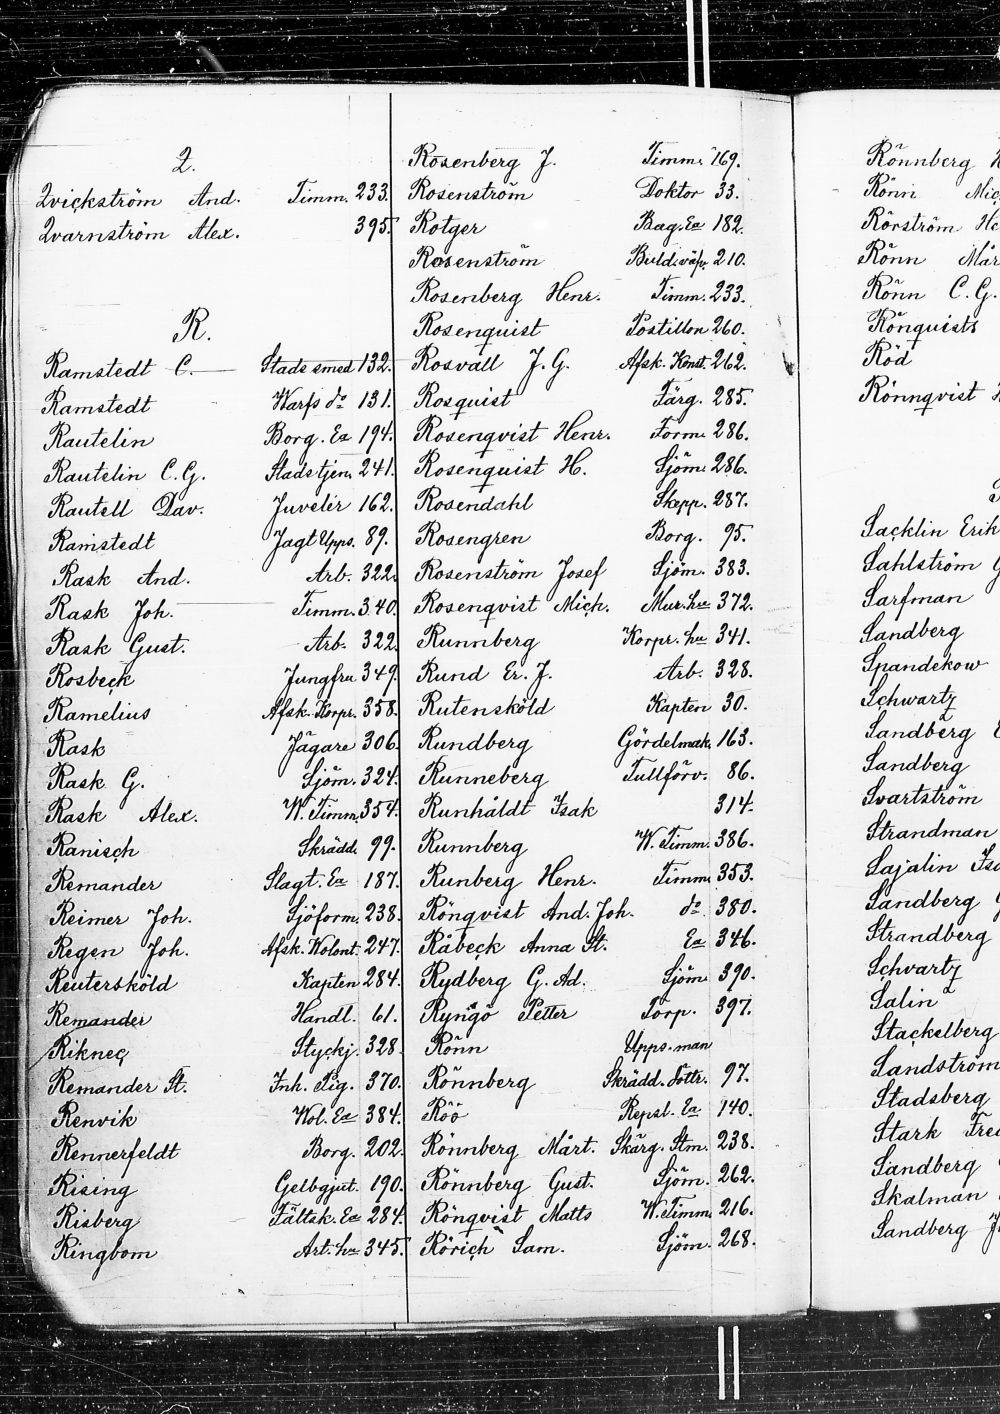 Q.
Qvickström And. Timm. 233.
Qvarnström Alex. 395.
R.
Ramstedt C. Stads smed 132.
Ramstedt Warfs do 131.
Rautelin Borg. Ea 194.
Rautelin C.G. Stadstjen. 241.
Rautell Dav. Juvelér 162.
Ramstedt Jagt Upps. 89.
Rask And. Arb. 322.
Rask Joh. Timm. 340.
Rask Gust. Arb. 322.
Rosbeck Jungfru 349.
Ramelius Afsk. Korpr. 358.
Rask Jägare 306.
Rask G. Sjöm. 324.
Rask Alex. W. Timm. 354.
Ranisch Skrädd. 99.
Remander Slagt. Ea 187.
Reimer Joh. Sjöform. 238.
Regen Joh. Afsk. Wolont. 247.
Reutersköld Kapten 284.
Remander Handl. 61.
Riknec Styckj. 328.
Remander St. Inh. Pig. 370.
Renvik Wol. Ea 384.
Rennerfeldt Borg. 202.
Rising Gelbgjut. 190.
Risberg Fältsk. Ea 284.
Ringbom Art. hu 345.
Rosenberg J. Timm. 169.
Rosenström Doktor 33.
Rotger Bag. Ea 182.
Rosenström Buld.väfv. 210.
Rosenberg Henr. Timm. 233.
Rosenquist Postillon 260.
Rosvall J.G. Afsk. Konst. 262.
Rosquist Färg. 285.
Rosenqvist Henr. Form. 286.
Rosenquist H. Sjöm. 286.
Rosendahl Skepp. 287.
Rosengren Borg. 95.
Rosenström Josef Sjöm. 383.
Rosenqvist Mich. Mur. hu 372.
Runnberg Korpr. hu 341.
Rund Er. J. Arb. 328.
Rutensköld Kapten 30.
Rundberg Gördelmak. 163.
Runneberg Tullförv. 86.
Runhäldt Isak 314.
Runnberg W. Timm. 386.
Runberg Henr. Timm. 353.
Rönqvist And. Joh. do 380.
Råbeck Anna St. Ea 346.
Rydberg G. Ad. Sjöm. 390.
Ryngö Petter Torp. 397.
Rönn Upps.man
Rönnberg Skrädd. Dottr. 97.
Röö Repsl. Ea 140.
Rönnberg Mårt. Skärg. Stm. 238.
Rönnberg Gust. Sjöm. 262.
Rönqvist Matts W. Timm. 216.
Rörich Sam. Sjöm. 268.
Rönnberg
Rönn Mic
Rörström He
Rönn Mår
Rönn C.G.
Rönquists
Röd
Rönnqvist
Sacklin Erik
Sahlström G
Sarfman
Sandberg
Spandekow
Schwartz
Sandberg
Sandberg
Svartström
Strandman
Sajalin Isa
Sandberg
Strandberg
Schvartz
Salin
Stackelberg
Sandström
Stadsberg
Stark Fred
Sandberg
Skalman
Sandberg J